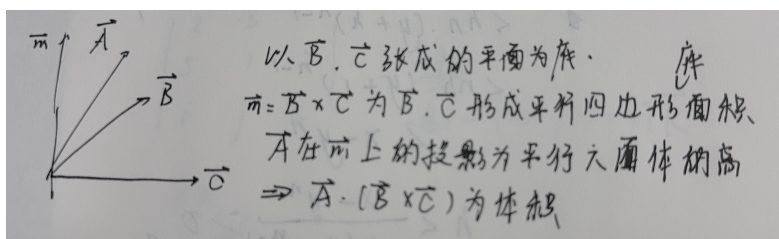 m⃗
A⃗
B⃗
C⃗
以 B⃗ . C⃗ 张成的平面为底.
底
m⃗ = B⃗ × C⃗ 为 B⃗ . C⃗ 形成平行四边形面积
A⃗ 在 m⃗ 上的投影为平行六面体的高
⇒ A⃗ · (B⃗ × C⃗) 为体积